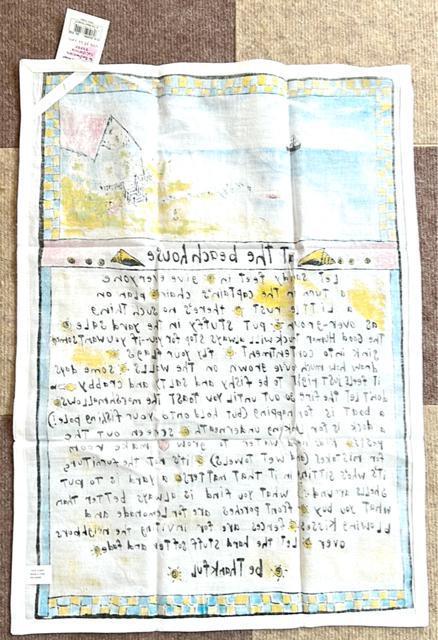 at the beachhouse
Let sandy feet in give everyone
a turn in the captain's chair plan on
a little rust there's no such thing
as over-grown put stuff in the yard sale
The Good Humor truck will always stop for you-if you want some
sink into contentment fly your flags
draw how much you've grown on the walls some days
it feels right to be fishy and salty and crabby
don't let the fire go out until you toast the marshmallows
a boat is for napping (but hold onto your fishing pole)
a dock is for underneath screen out the
pests water to grow make room
for mistakes (and wet towels) it's not the furniture
it's who's sitting in it that matters a yard is to put
shells around what you find is always better than
what you buy front porches are for lemonade and
blowing kisses fences are for inviting the neighbors
over let the hard stuff soften and fade
be Thankful